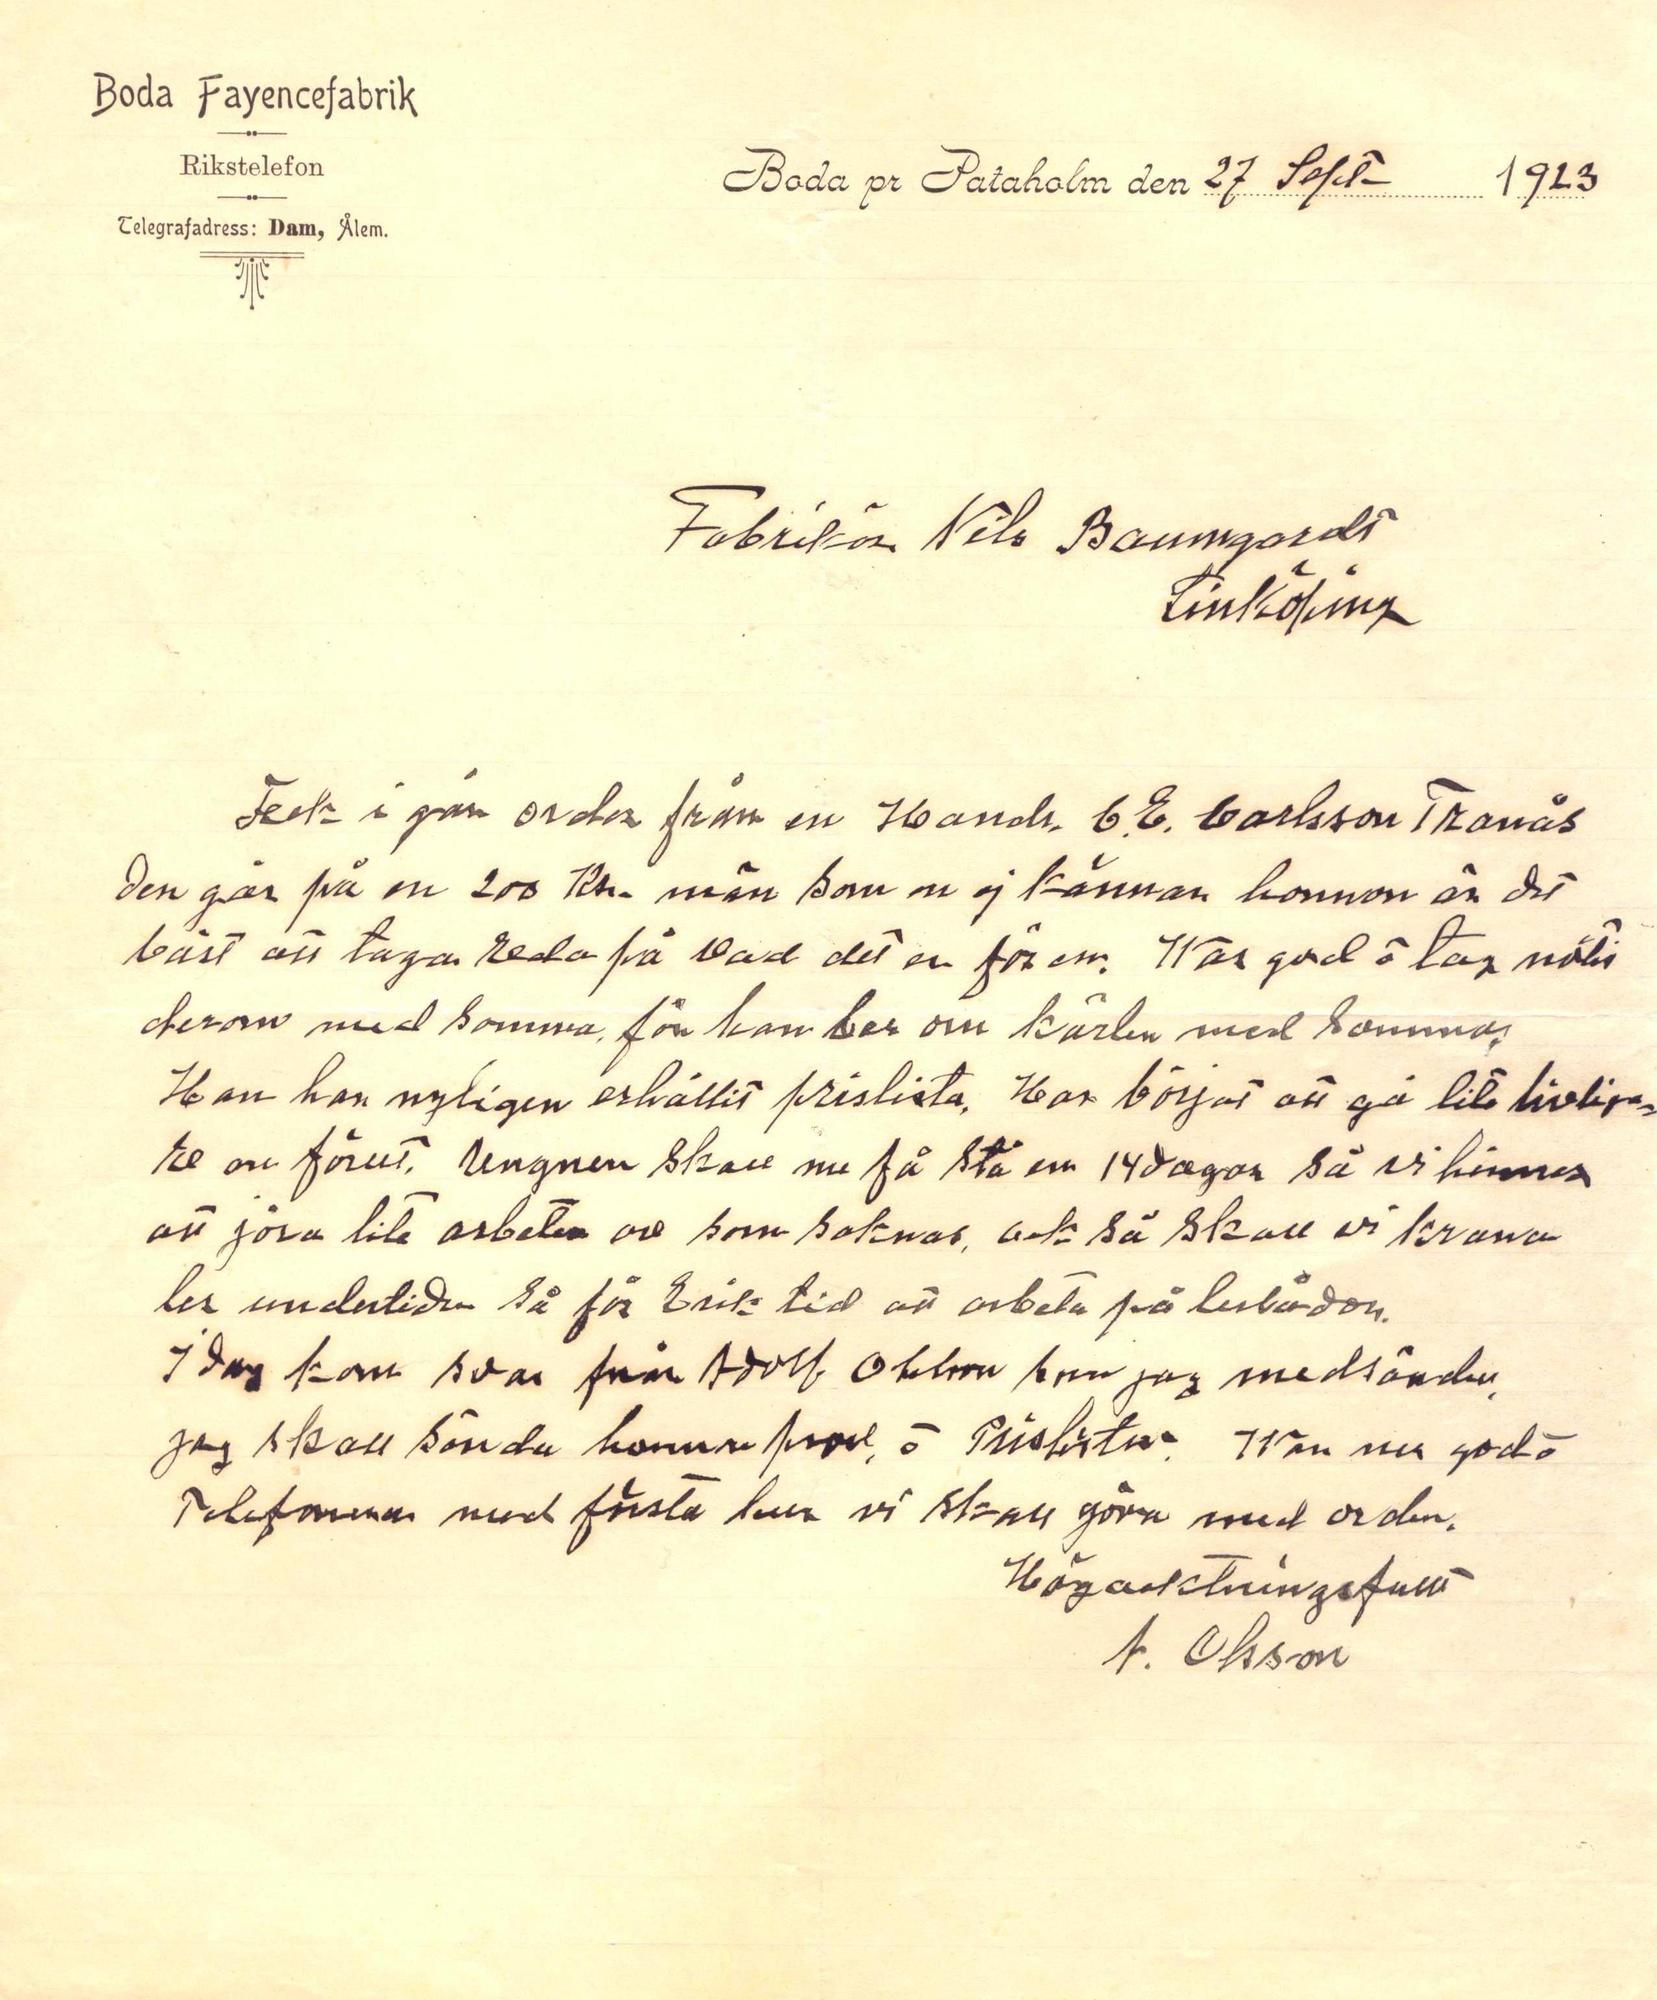 Boda Fayencefabrik
Rikstelefon
Telegrafadress: Dam, Ålem.
Boda pr Pataholm den 27 Sept 1923
Fabrikör Nils Baumgardt
Linköping
Feck i går order från en Handl. C.E. Carlsson Tranås
den går på en 200 Kr. män som en ej känner honnom är det
bäst att taga reda på vad det er för en. Wär god ô tag nôtis
derom med somma, för han ber om kärlen med somma,
Han har nyligen erhållit prislista. Har börjat att gå lite livliga-
re en förut. Ungnen skall nu få stå en 14 dagar så vi hinner
att jöra lite arbeten av som saknas, ock så skall vi krana
ler undertiden så får Erik tid att arbeta på lerlådor.
I dag kom svar från Adolf Ohlson som jag medsänder,
jag skall sända honnom prov, ô Prislistor. Wär nu god ô
Telefonera med första hur vi skall göra med orden.
Högacktningsfullt
A. Olsson